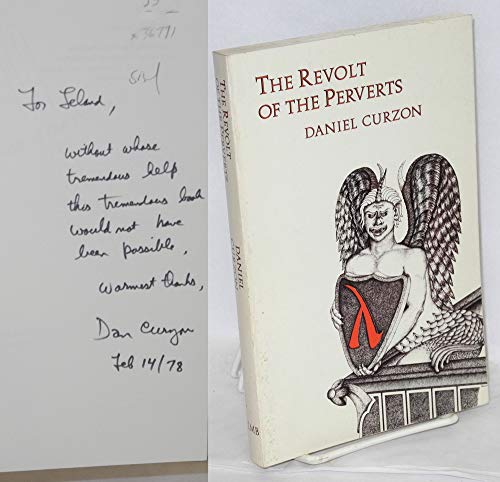 x36771
For Leland,
without whose
tremendous help
this tremendous book
would not have
been possible,
warmest thanks,
Dan Curzon
Feb 14/78
THE REVOLT
DANIEL
LMB
THE REVOLT
OF THE PERVERTS
DANIEL CURZON
λ